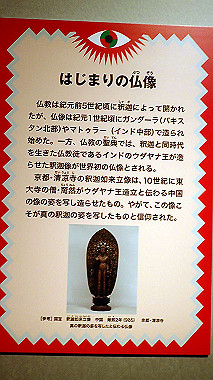 はじまりの仏像
仏教は紀元前5世紀頃に釈迦によって開かれ
たが、仏像は紀元1世紀頃にガンダーラ(パキス
タン北部)やマトゥラー(インド中部)で造られ
始めた。一方、仏教の聖典では、釈迦と同時代
を生きた仏教徒であるインドのウダヤナ王が造
らせた釈迦像が世界初の仏像とされる。
京都・清凉寺の釈迦如来立像は、10世紀に東
大寺の僧・奝然がウダヤナ王造立と伝わる中国
の像の姿を写し造らせたもの。やがて、この像こ
そが真の釈迦の姿を写したものと信仰された。
[参考] 国宝 釈迦如来立像 中国 雍熙2年(985) 京都・清凉寺
真の釈迦の姿を写したと伝わる仏像